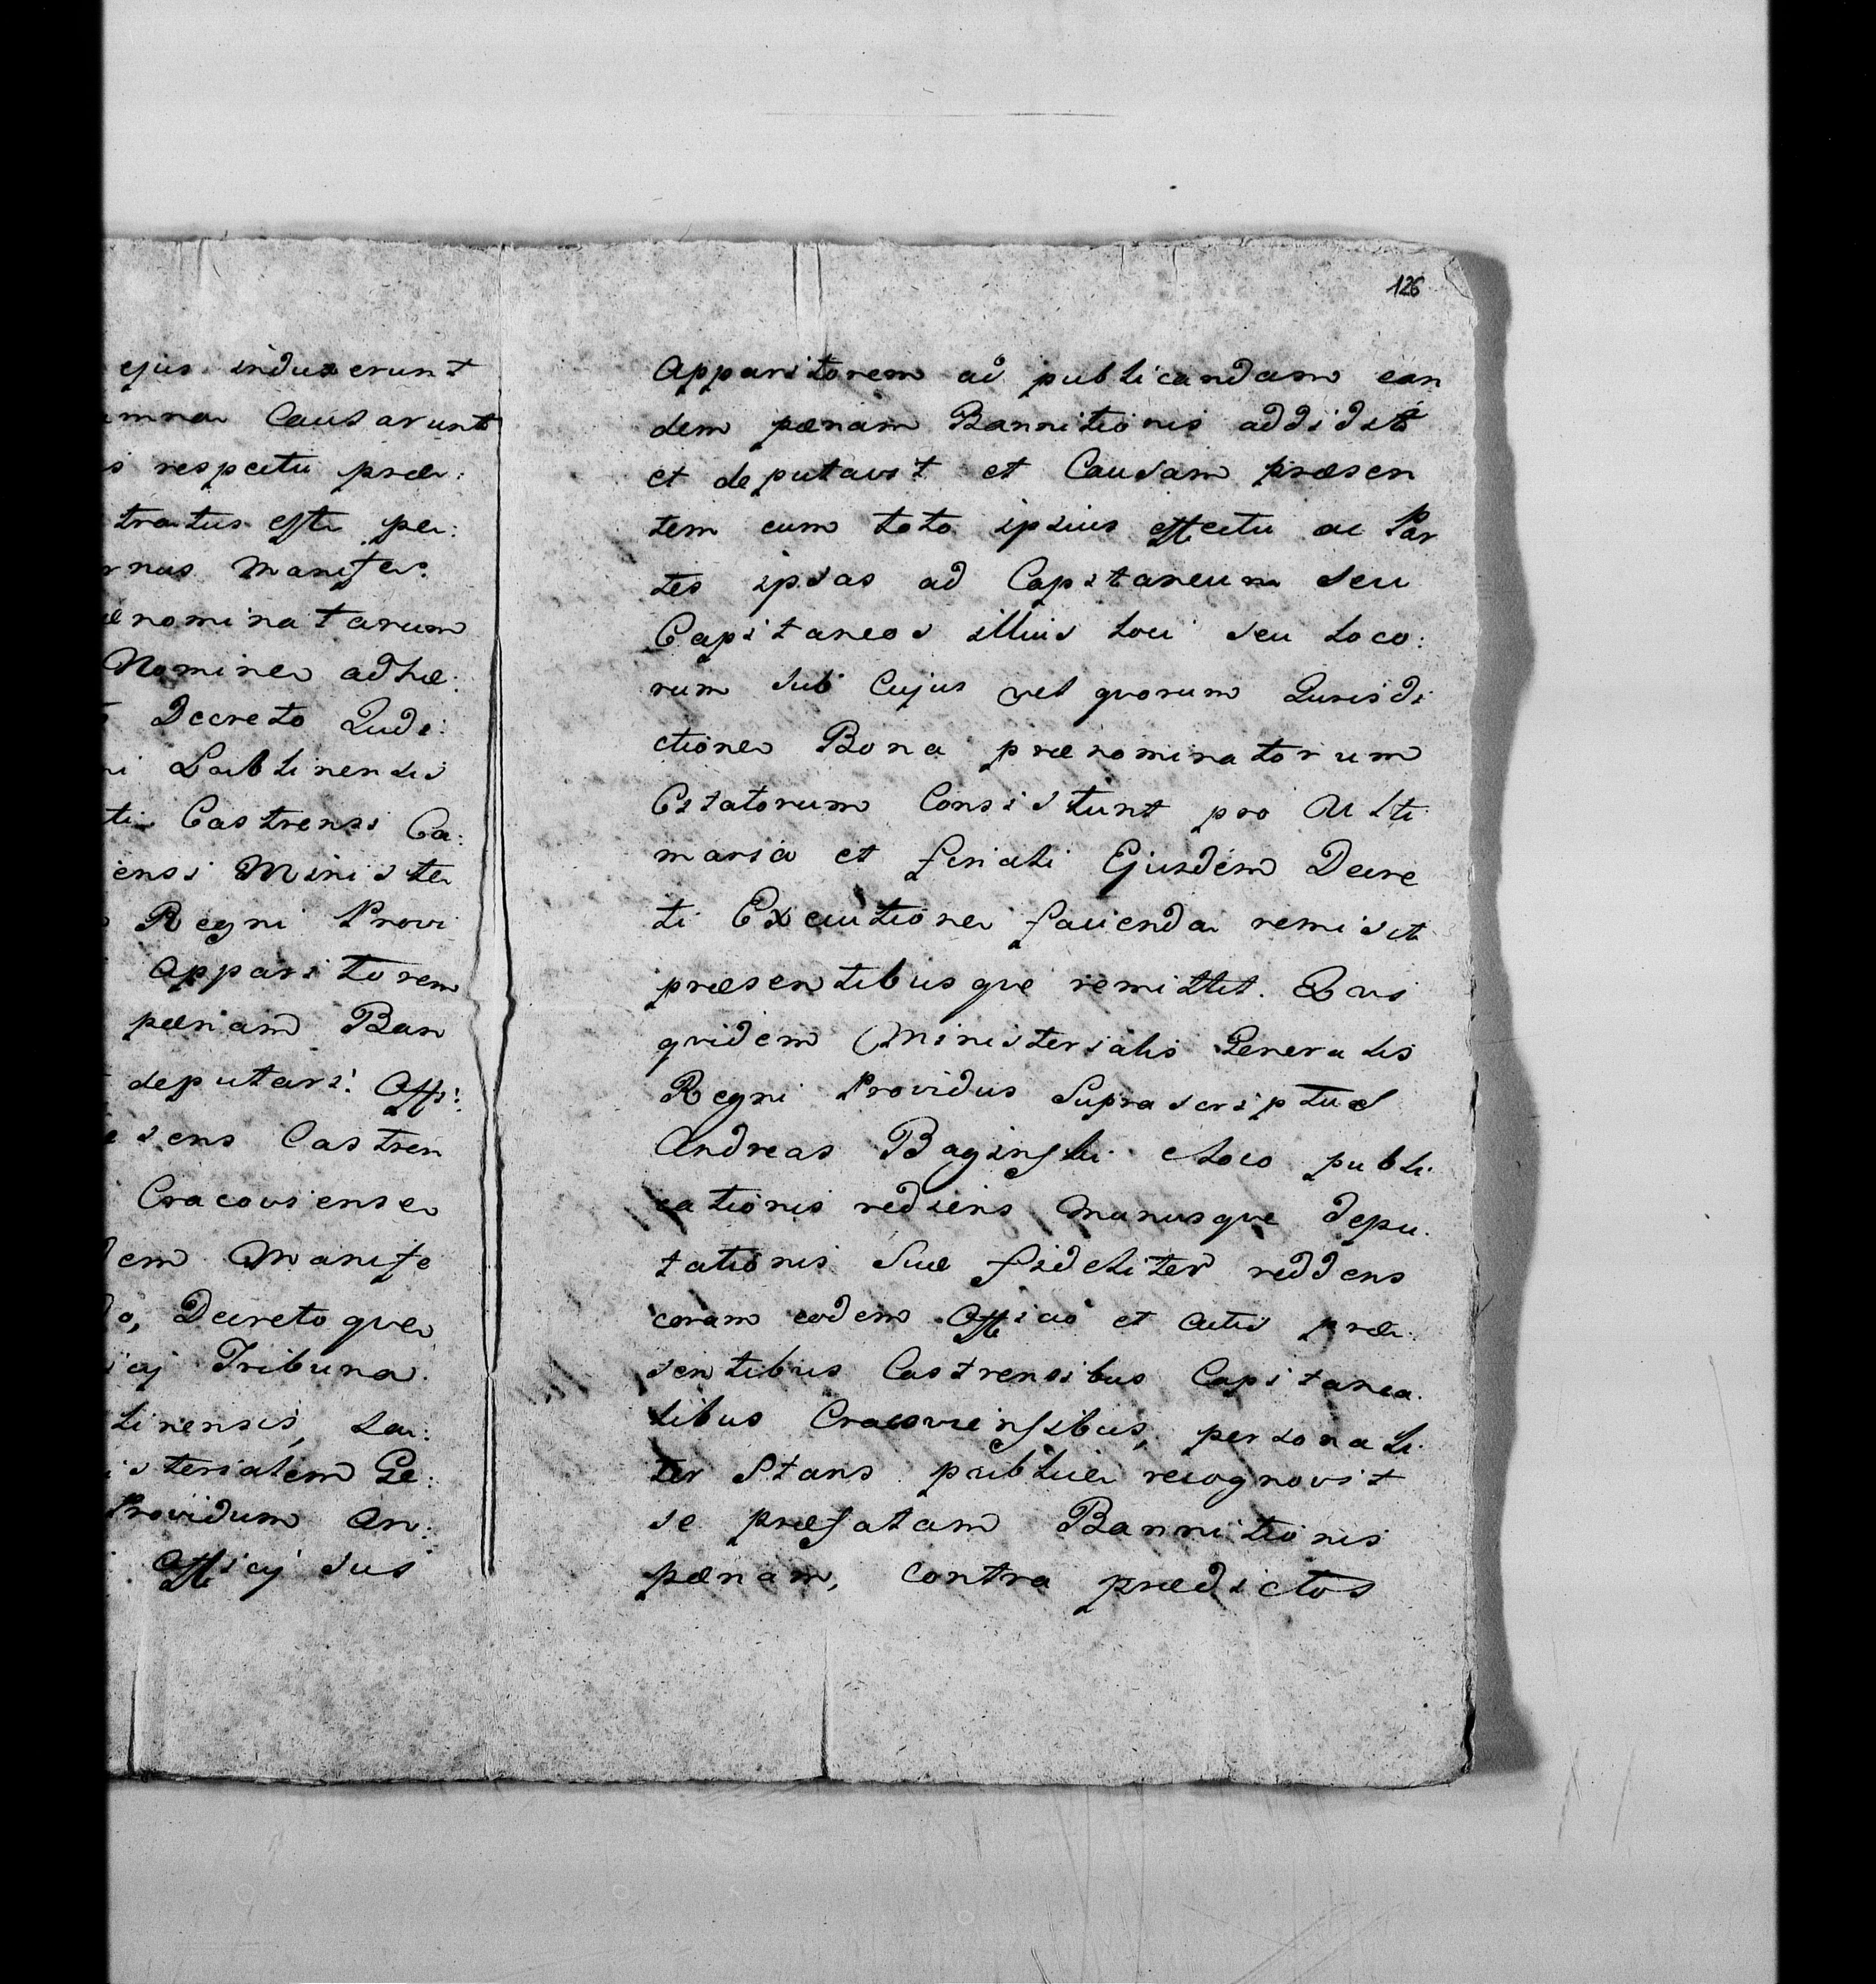 ejus induxerunt
mna Causarunt
s respectu præ:
tratus esse pa:
rnus Manifes:
ænominatarum
Nomine adhæ:
Decreto Judi:
ni Lublinensis
ti Castrensi Ca:
iensi Ministe
Regni Provi
Apparitorem
pænam Ban
deputari. Offi:
esens Castren
Cracoviense
dem Manife
do, Decretoque
iaj Tribuna.
linensis, La:
isterialem Ge:
Providum An:
Officij sui
126
Apparitorem ad publicandam ean
dem pænam Bannitionis addidit
et deputavit et Causam præsen
tem cum toto ipsius effectu ac Par
tes ipsas ad Capitaneum seu
Capitaneos illius loci seu loco:
rum sub Cujus vel quorum Jurisdi
ctione Bona prænominatorum
Citatorum Consistunt pro Ulti
maria et finali Ejusdem Decre
ti Executione facienda remisit
præsentibusque remittit. Qui
quidem Ministerialis Generalis
Regni Providus Suprascriptus
Andreas Baginski eloco publi.
cationis rediens Munusque depu.
tationis Suæ fideliter reddens
coram eodem Officio et Actis præ.
sentibus Castrensibus Capitanea.
libus Cracoviensibus, personali.
ter Stans publice recognovit
se præfatam Bannitionis
pænam, contra prædictos